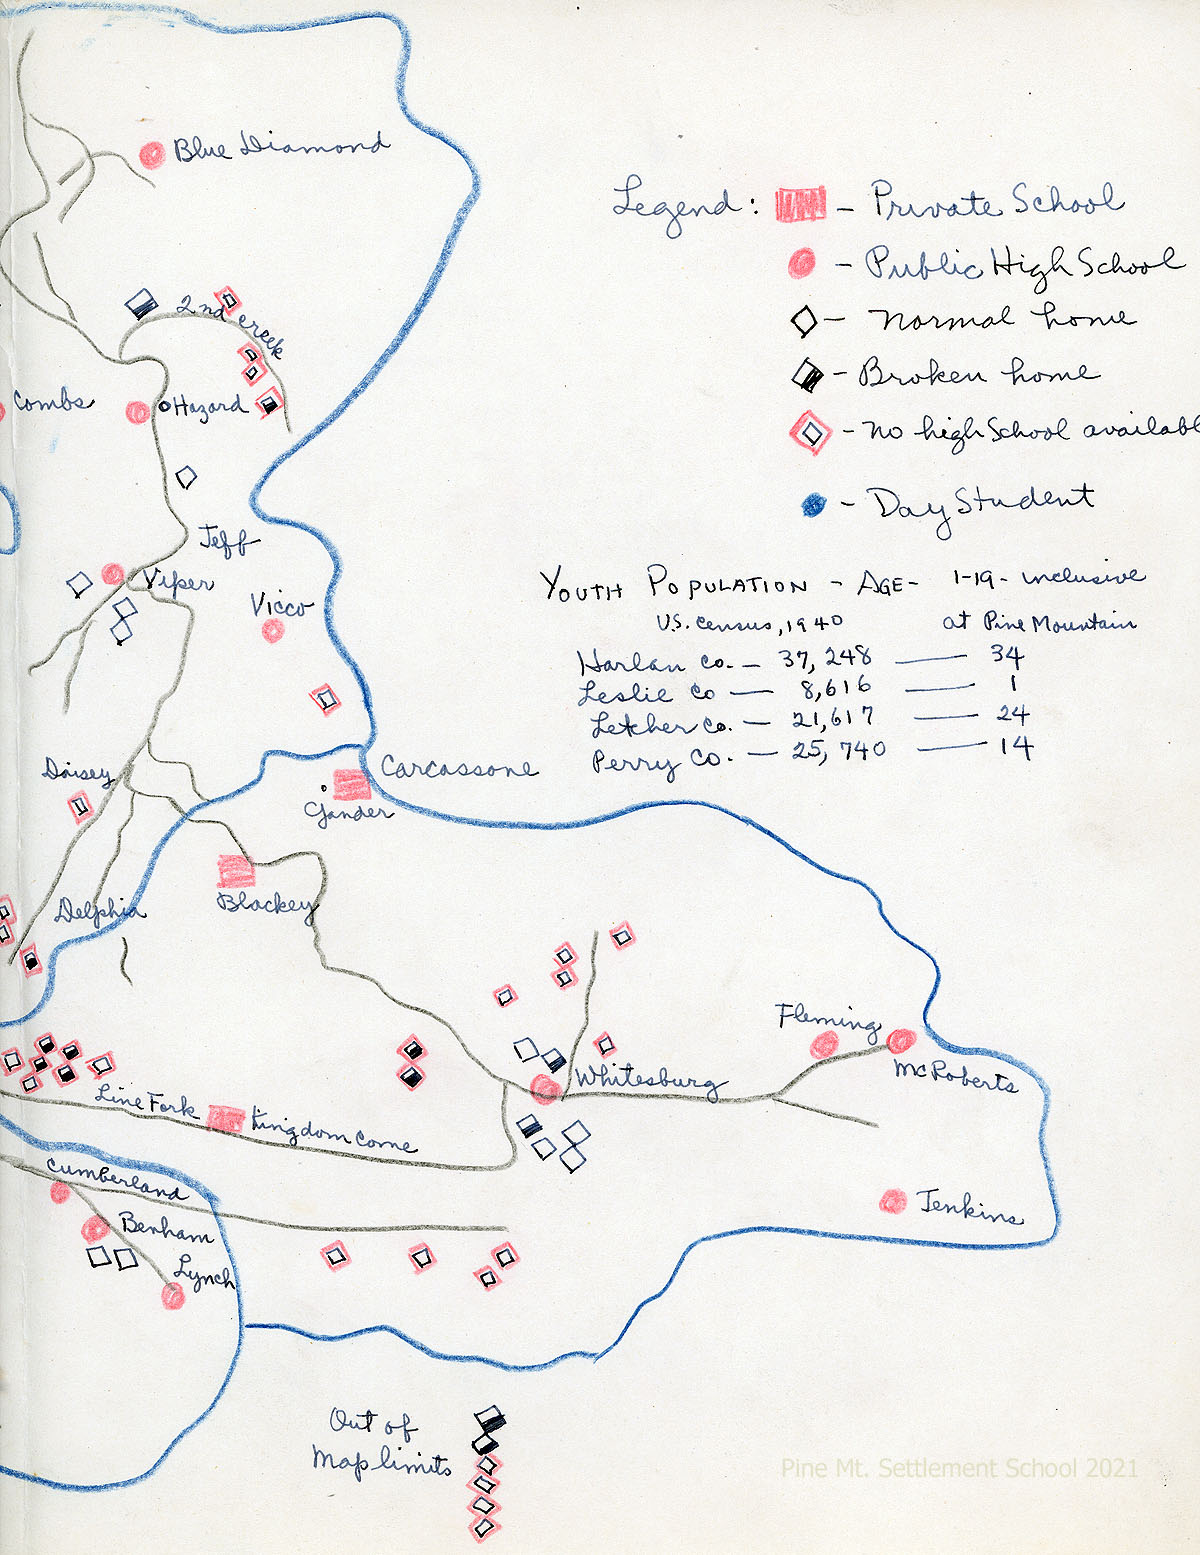 Blue Diamond
Legend:
- Private School
- Public High School
- Normal home
- Broken home
- No high School available
- Day Student
2nd creek
Combs
Hazard
Jeff
Viper
Vicco
YOUTH POPULATION - AGE - 1-19- inclusive
U.S. census, 1940 at Pine Mountain
Harlan Co. — 37,248 — 34
Leslie Co — 8,616 — 1
Letcher Co. — 21,617 — 24
Perry Co. — 25,740 — 14
Daisey
Carcassone
Gander
Blackey
Delphia
Fleming
McRoberts
Whitesburg
Line Fork
Kingdom Come
Cumberland
Benham
Lynch
Jenkins
Out of
Map limits
Pine Mt. Settlement School 2021